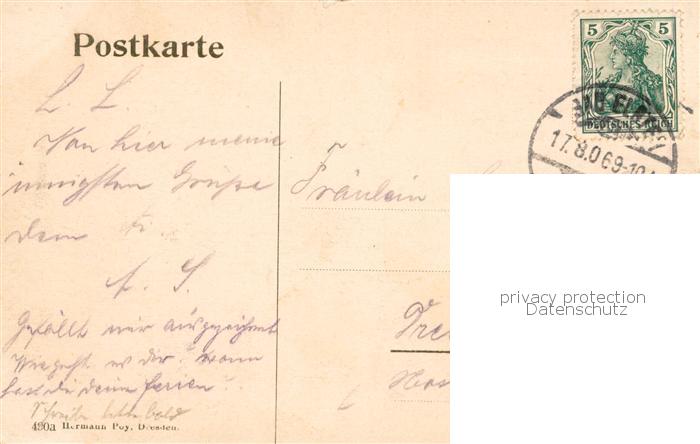 Postkarte
5 5
DEUTSCHES REICH
17.8.06 9-10
L. L.
Von hier meine
innigsten Grüße
dem
A. S.
Fräulein
privacy protection
Datenschutz
Gefällt mir ausgezeichnet
Wie geht es dir? wann
hast du deine Ferien?
Schreibe bitte bald
490a Hermann Poy, Dresden.